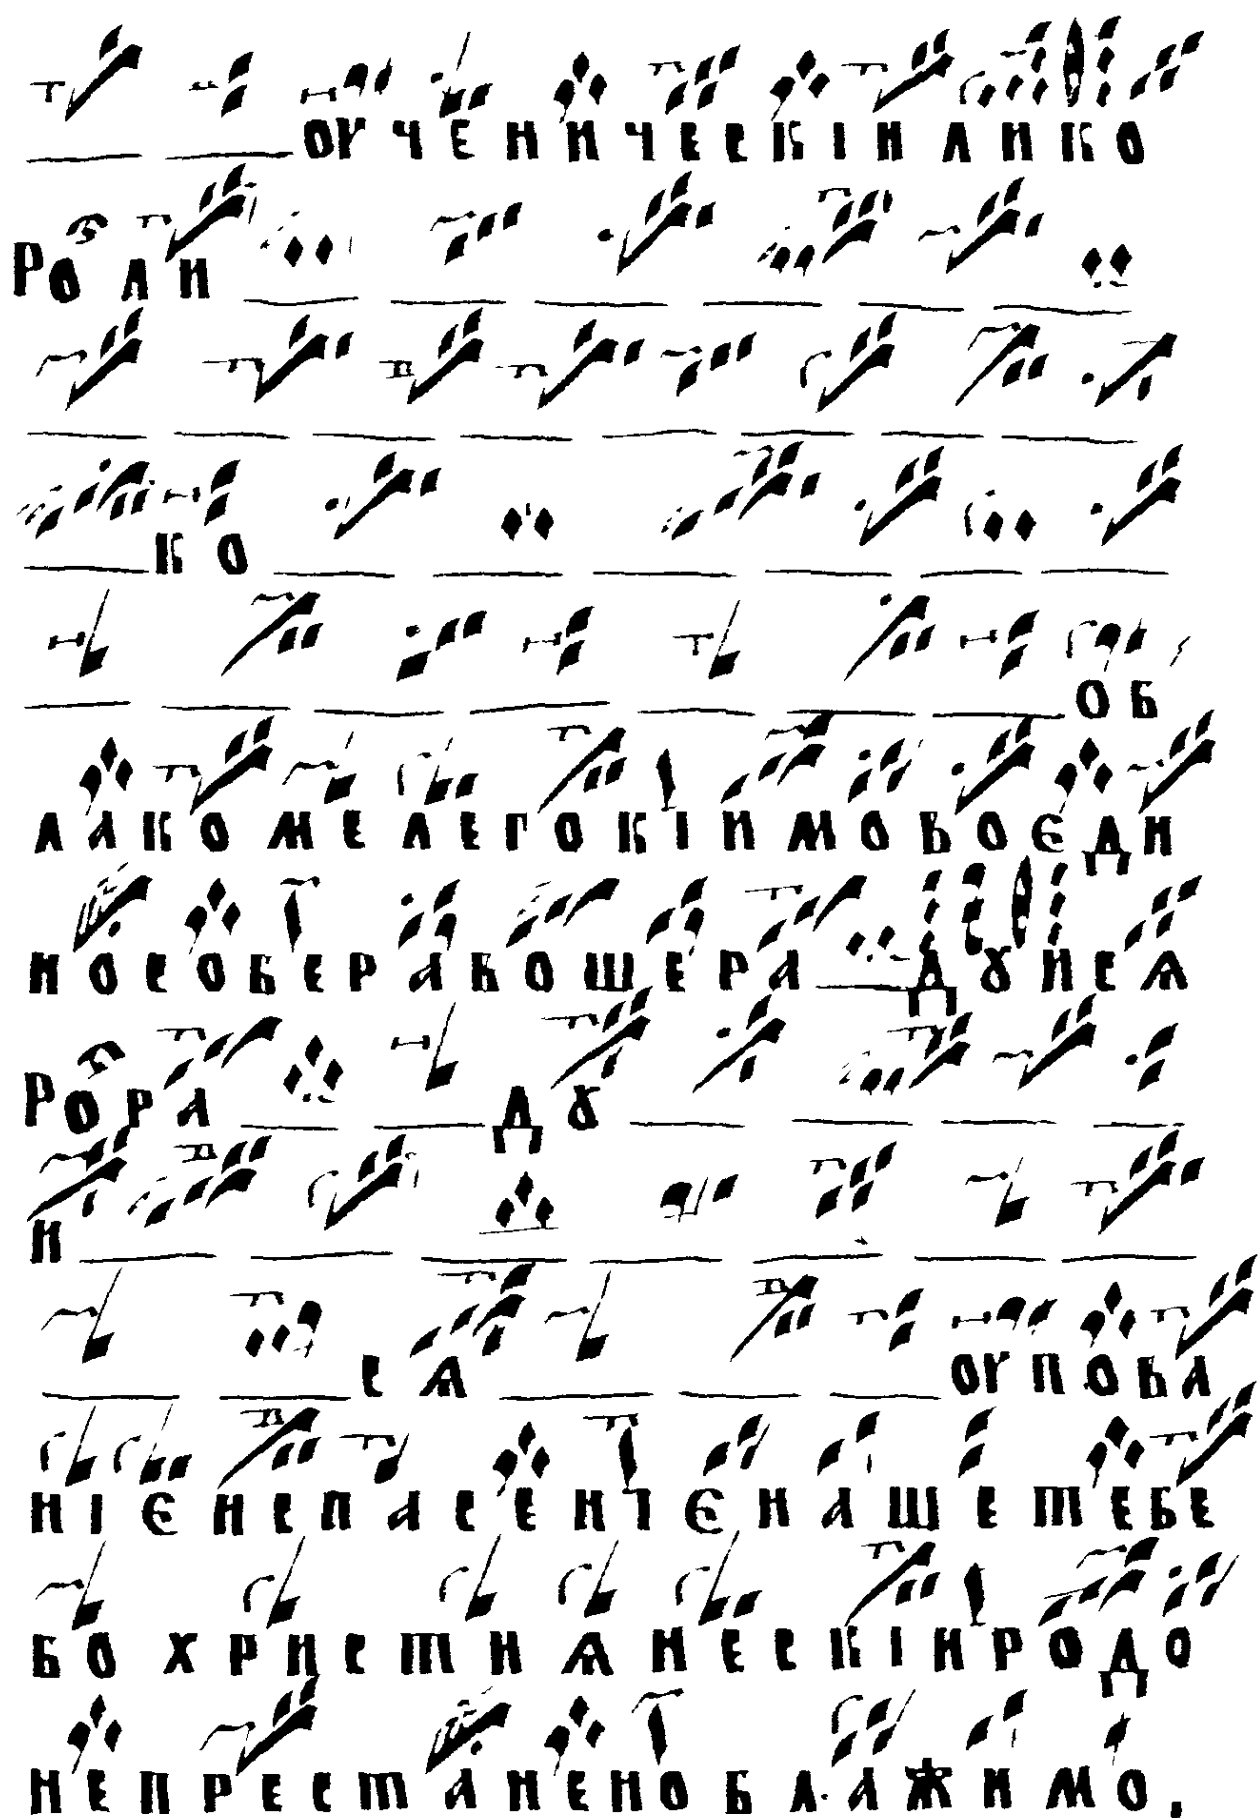 ОУЧЕНИЧЕСКІИ ЛИКО
РО ЛИ
КО
ОБ
ЛАКОМЕ ЛЕГОКІИМО ВО ЄДИ
НО СОБЕРАВОШЕ РАДꙊИСѦ
РО РАДꙊ
И
СѦ ОУПОВА
НІЄ И СПАСЕНІЄ НАШЕ ТЕБЕ
БО ХРИСТИѦНЕСКІИ РОДО
НЕПРЕСТАНЕНО БЛАЖИМО.